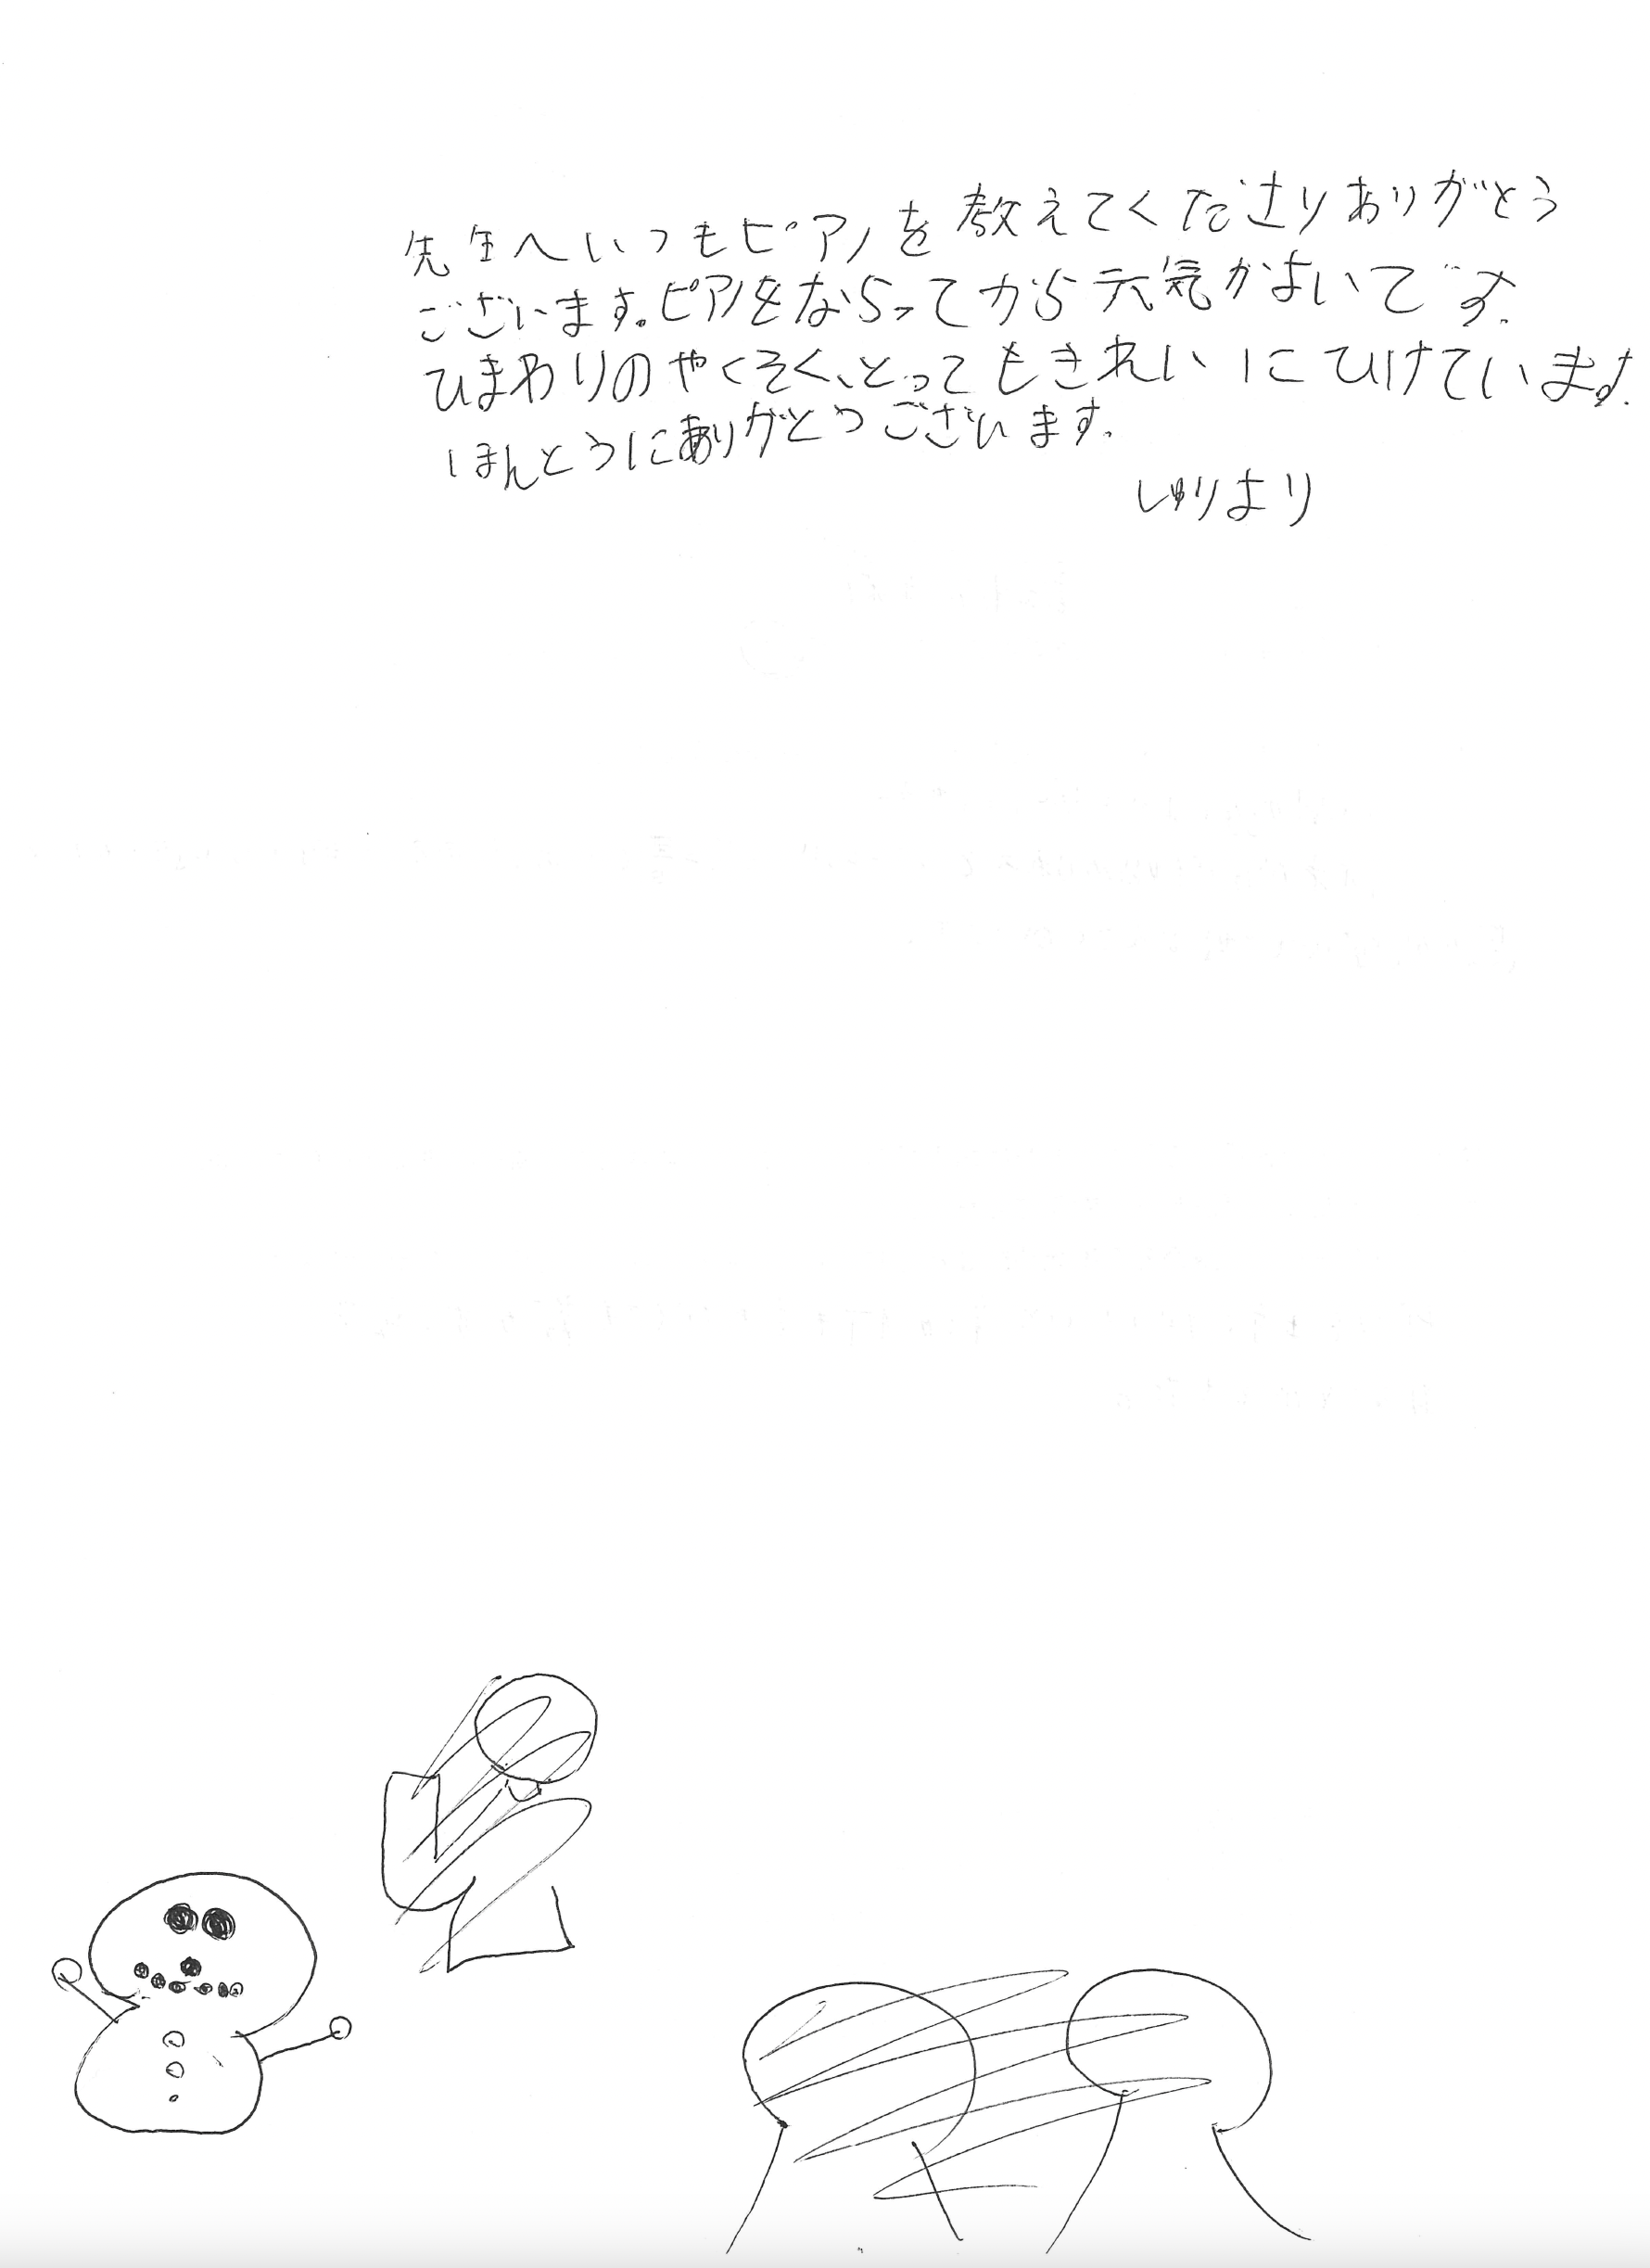 先生へいつもピアノを教えてくださりありがとう
ございます。ピアノをならってから元気がよいです。
ひまわりのやくそく、とってもきれいにひけています。
ほんとうにありがとうございます。
しゅりより